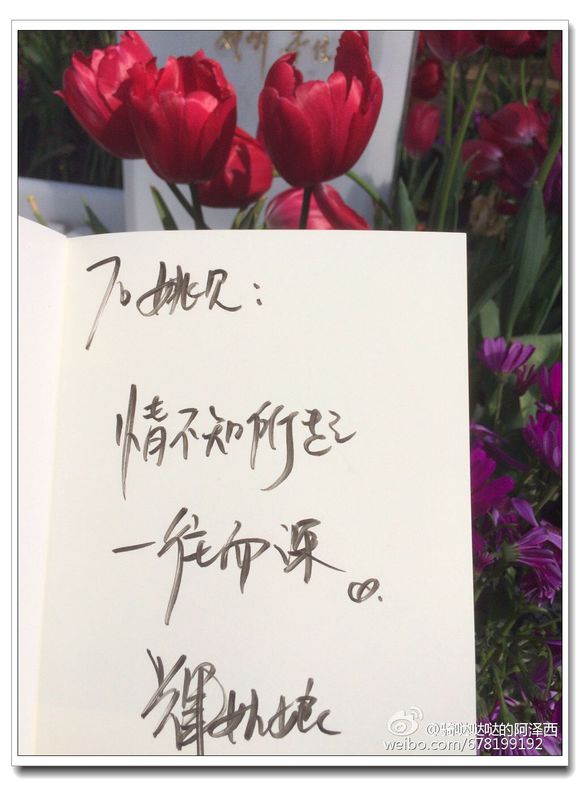 To 姚贝：
情不知所起
一往而深。
辉姑娘
的阿泽西
weibo.com/678199192